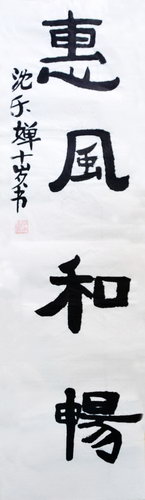 惠風和暢
沈乐婵十岁书